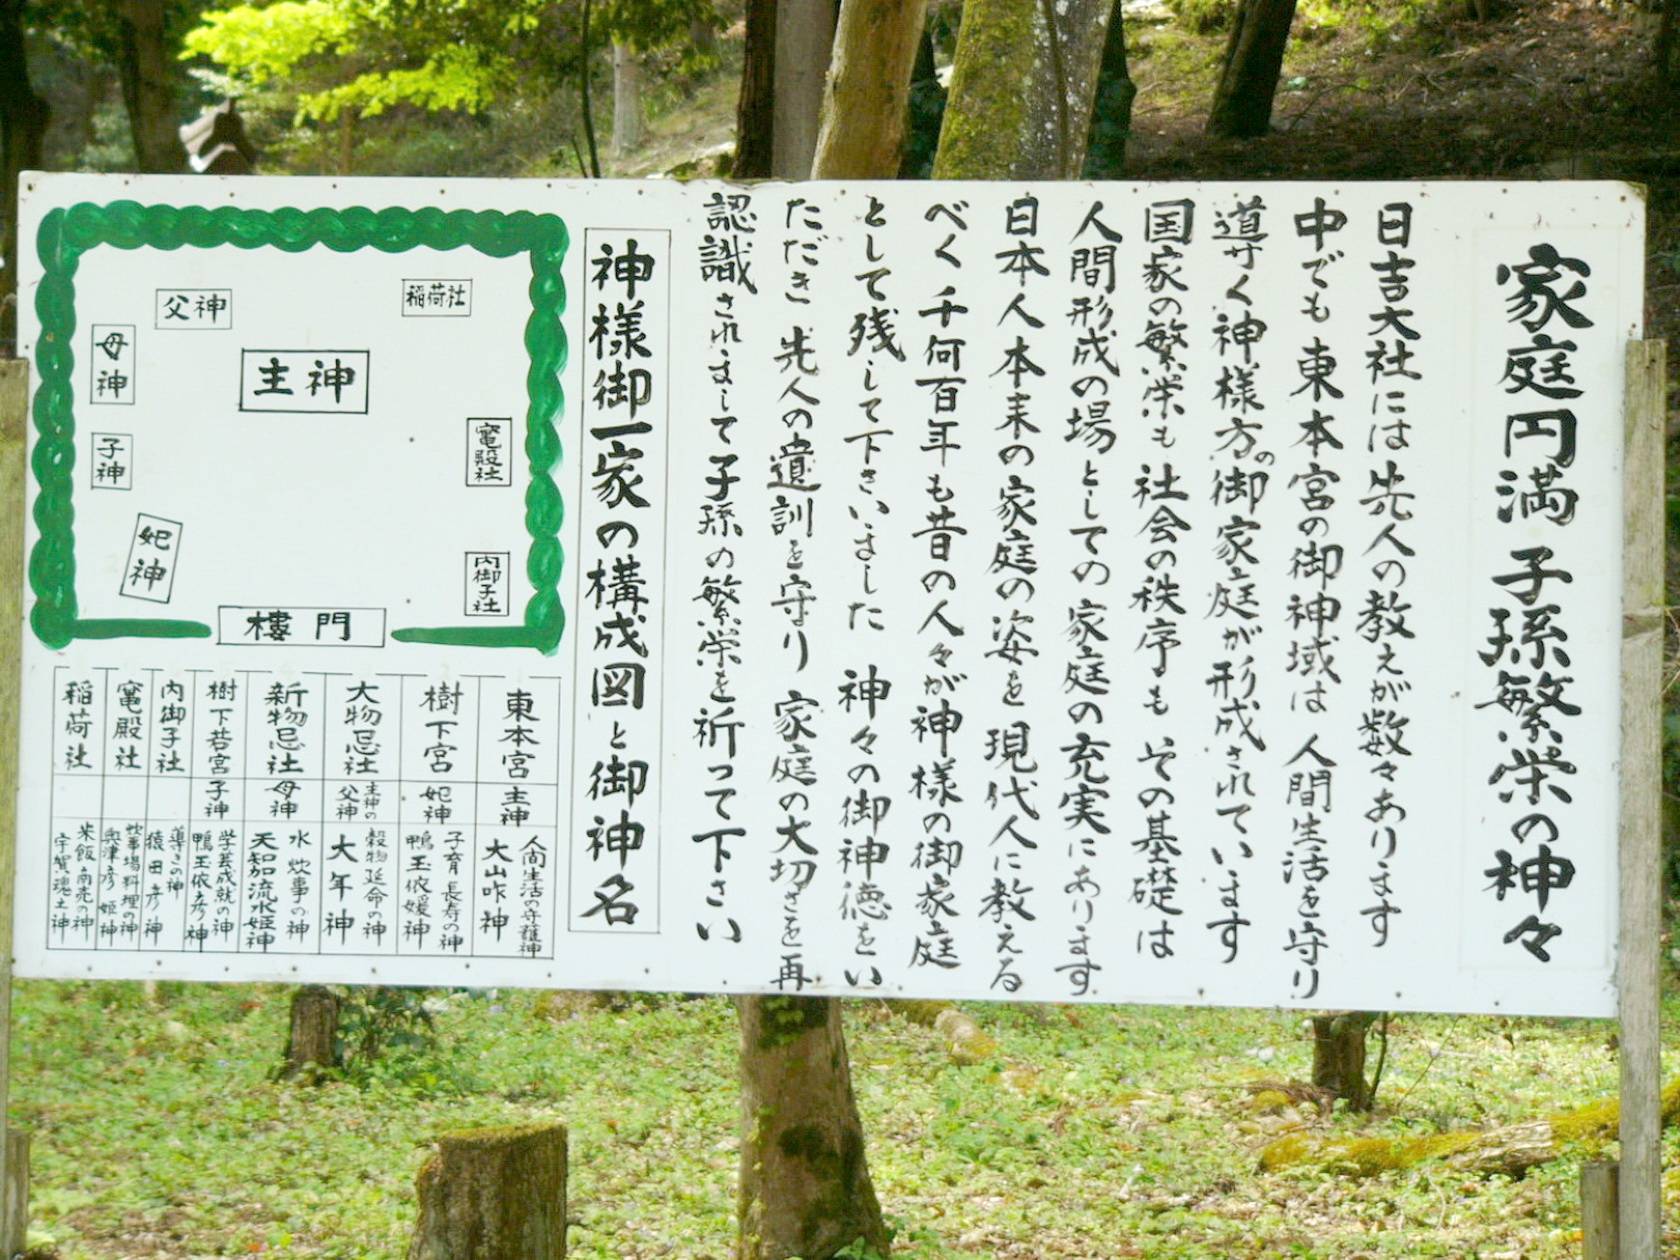 家庭円満 子孫繁栄の神々
日吉大社には先人の教えが数々あります
中でも東本宮の御神域は 人間生活を守り
道サく神様方の御家庭が形成されています
国家の繁栄も 社会の秩序も その基礎は
人間形成の場としての 家庭の充実にあります
日本人本来の家庭の姿を 現代人に教える
べく 千何百年も昔の人々が神様の御家庭
として残して下さいました 神々の御神徳をい
ただき 先人の遺訓を守り 家庭の大切さを再
認識されまして子孫の繁栄を祈って下さい
神様御一家の構成図と御神名
父神
稲荷社
母神
主神
子神
竃殿社
妃神
内御子社
樓門
東本宮
主神
人間生活の守護神
大山咋神
樹下宮
妃神
子育 長寿の神
鴨玉依媛神
大物忌社
主神の父神
穀物延命の神
大年神
新物忌社
母神
水 炊事の神
天知流水姫神
樹下若宮
子神
学芸成就の神
鴨玉依彦神
内御子社
導きの神
猿田彦神
竃殿社
炊事場料理の神
奥津彦 姫神
稲荷社
米飯商売の神
宇賀魂土神